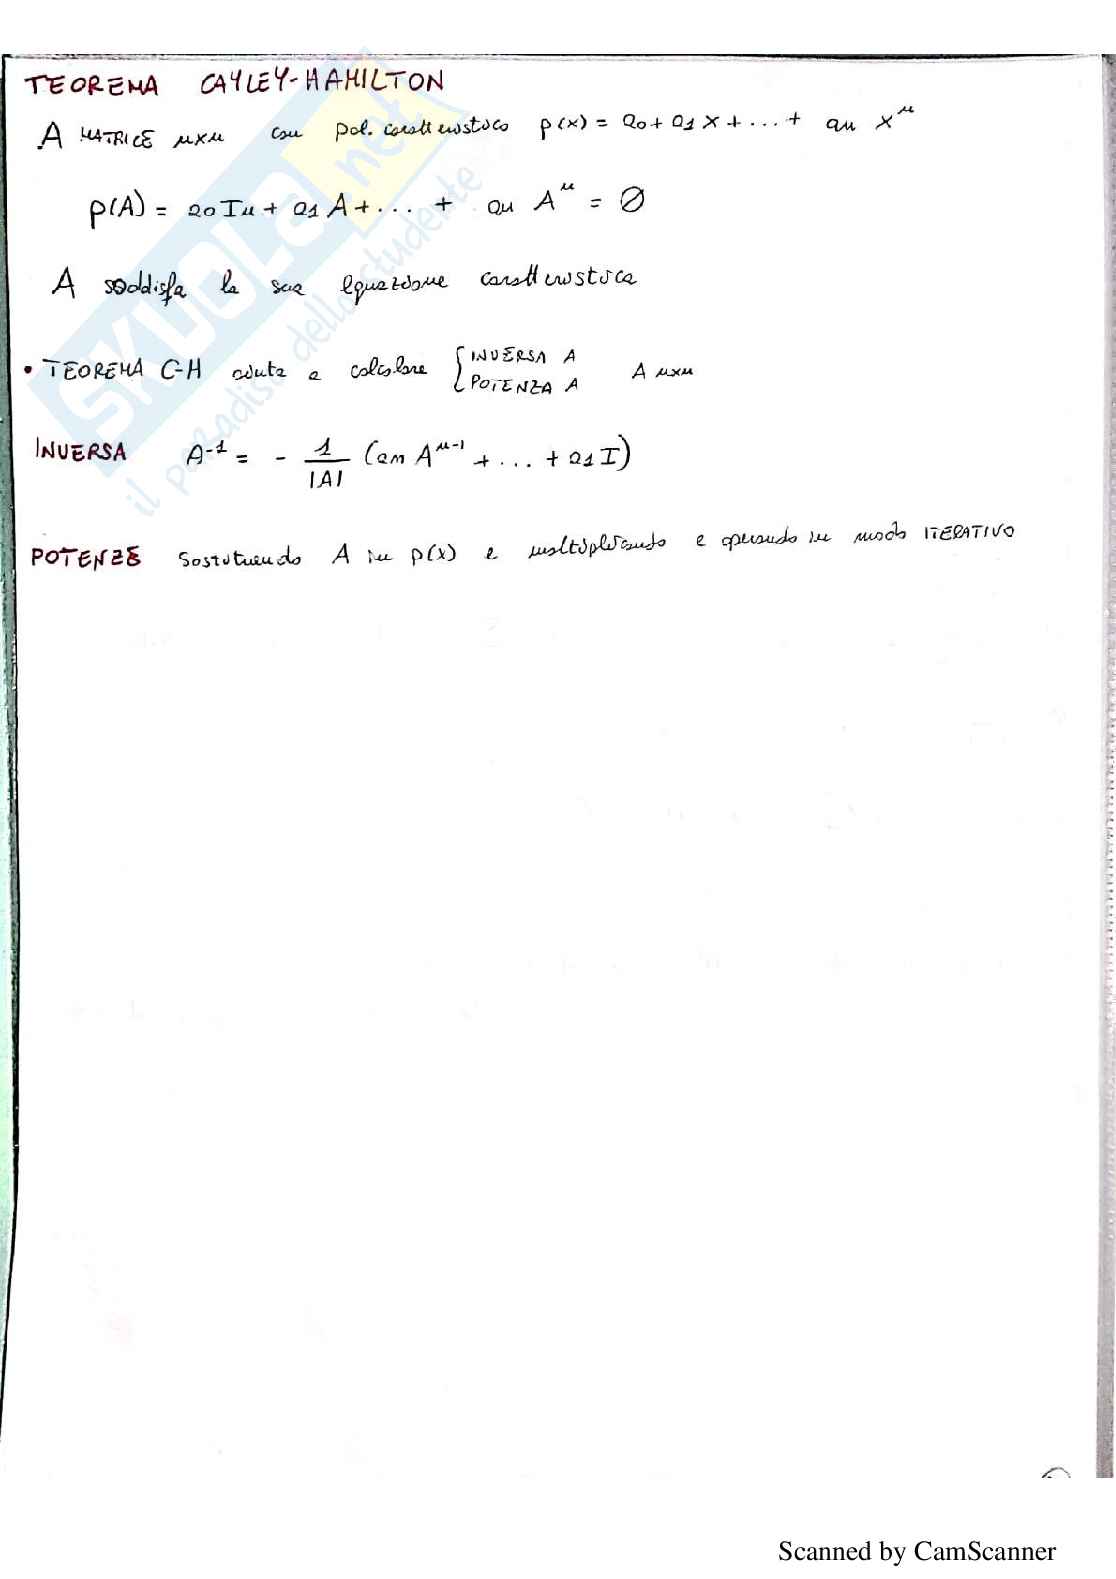 TEOREMA CAYLEY-HAMILTON
A MATRICE nxn con pol. caratteristico p(x) = a0 + a1 x + ... + an x^n
p(A) = a0 In + a1 A + ... + an A^n = ∅
A soddisfa la sua equazione caratteristica
• TEOREMA C-H aiuta a calcolare { INVERSA A
POTENZA A A nxn
INVERSA A^-1 = - 1/|A| (an A^n-1 + ... + a1 I)
POTENZE Sostituendo A in p(x) e moltiplicando e operando in modo ITERATIVO
SKUOLA.net
il paradiso dello studente
Scanned by CamScanner